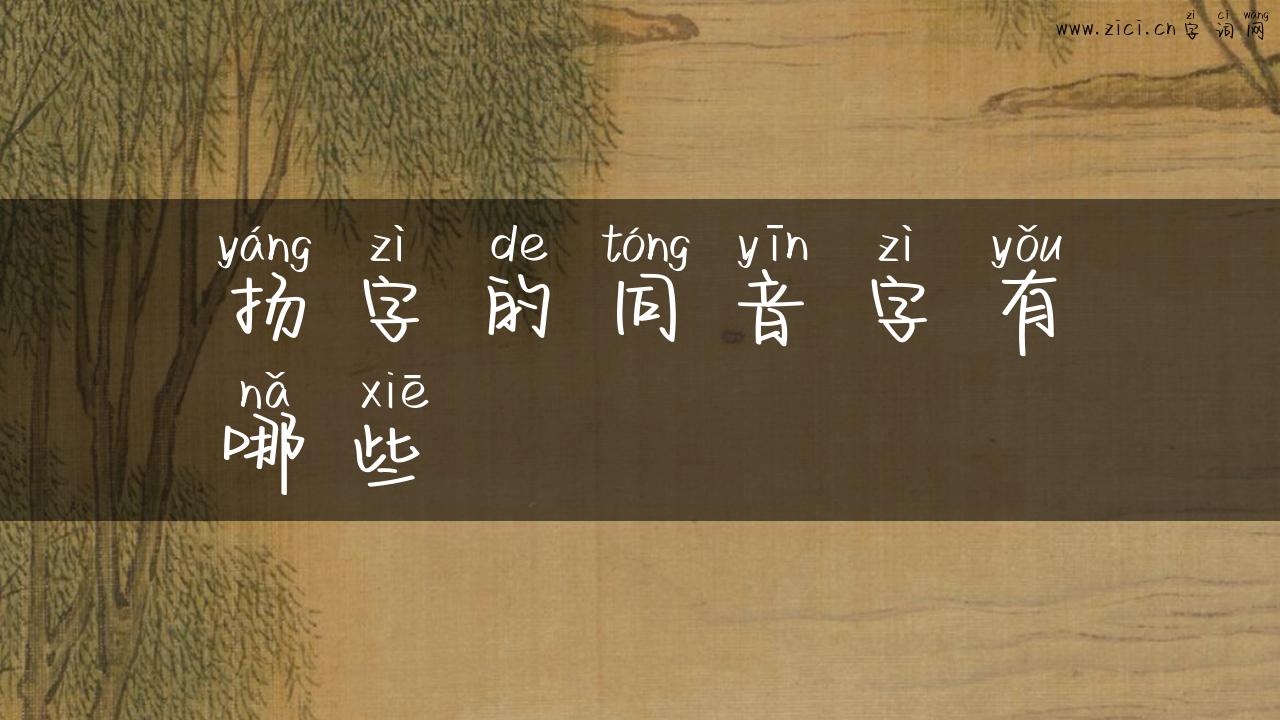 zì cí wǎng
www.zici.cn 字词网
yáng zì de tóng yīn zì yǒu
扬字的同音字有
nǎ xiē
哪些